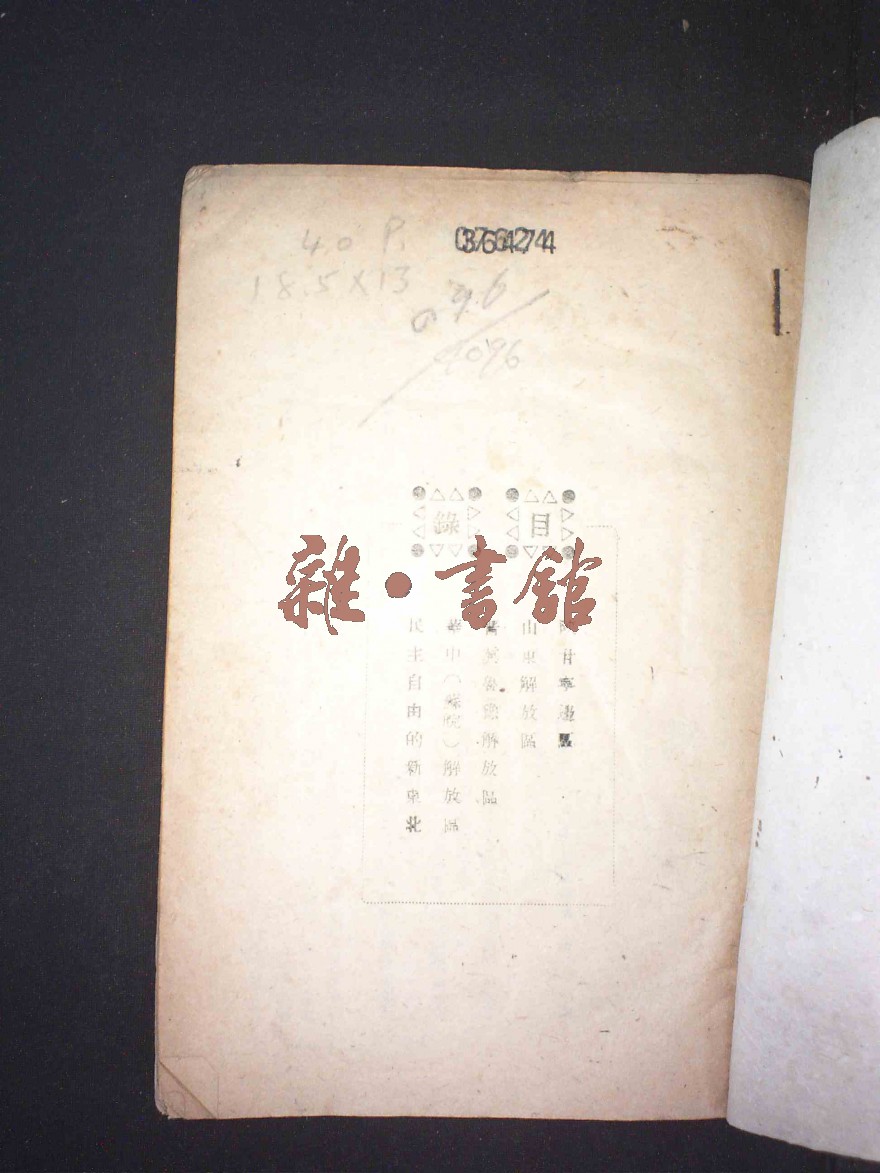 40 P.
18.5X13
目錄
陝甘寧邊區
山東解放區
晉冀魯豫解放區
華中(蘇皖)解放區
民主自由的新東北
雜•書館